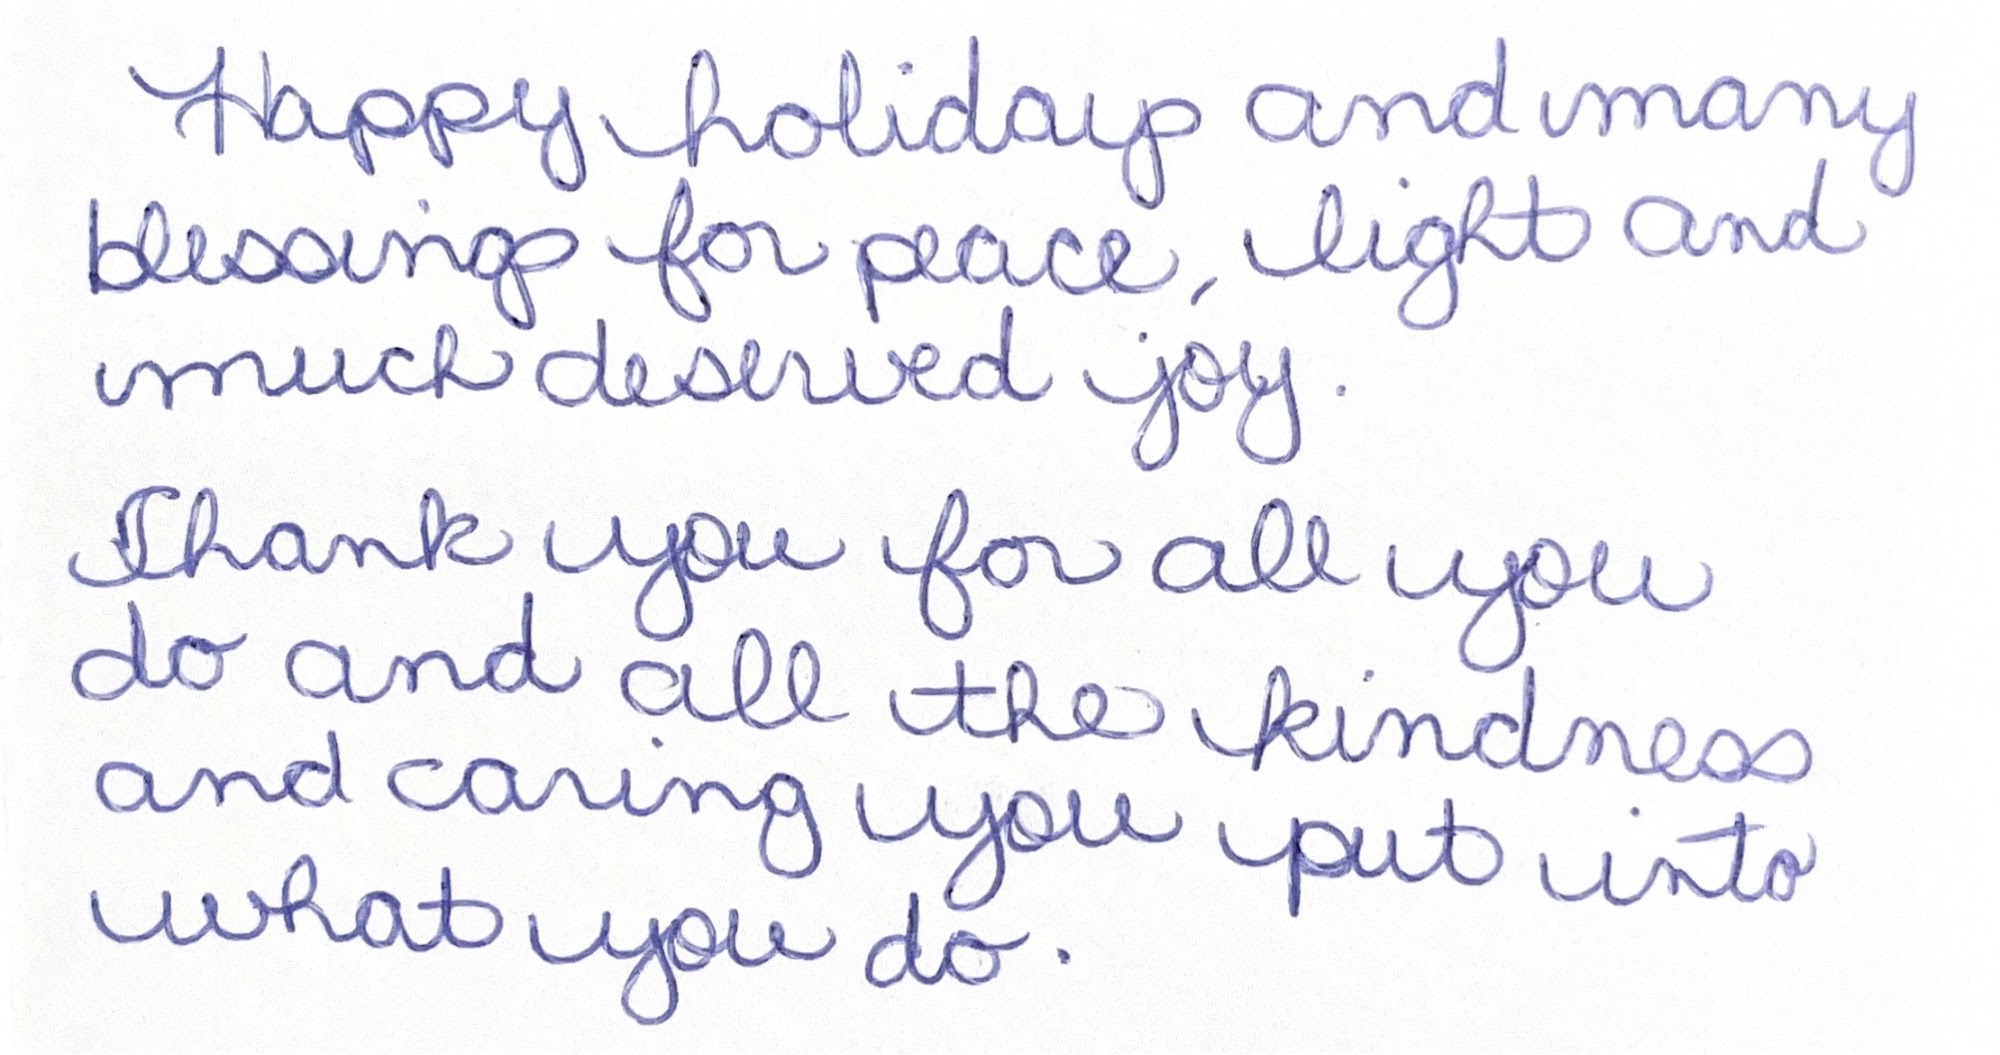 Happy holidays and many
blessings for peace, light and
much deserved joy.
Thank you for all you
do and all the kindness
and caring you put into
what you do.